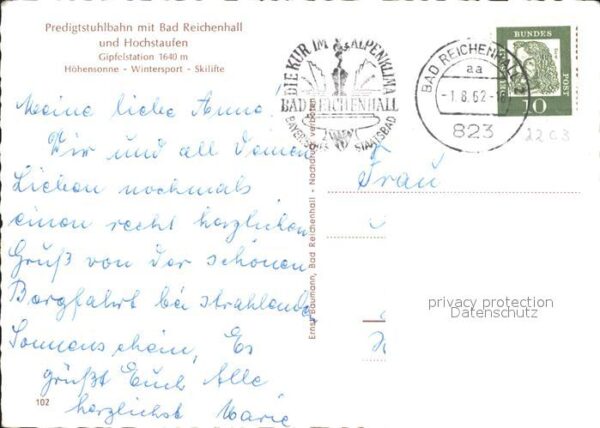 Predigtstuhlbahn mit Bad Reichenhall
und Hochstaufen
Gipfelstation 1640 m
Höhensonne - Wintersport - Skilifte
Meine liebe Anna!
Dir und all Deinen
Lieben nochmals
einen recht herzlichen
Gruß von der schönen
Bergfahrt bei strahlendem
Sonnenschein, Es
grüßt Euch Alle
herzlichst Marie
102
Ernst Baumann, Bad Reichenhall - Nachdruck verboten
DIE KUR IM ALPENKLIMA
BAD REICHENHALL
STAATSBAD
BAD REICHENHALL 2
aa
-1.8.62-
823
DEUTSCHE
BUNDES
POST
10
2203
Frau
privacy protection
Datenschutz